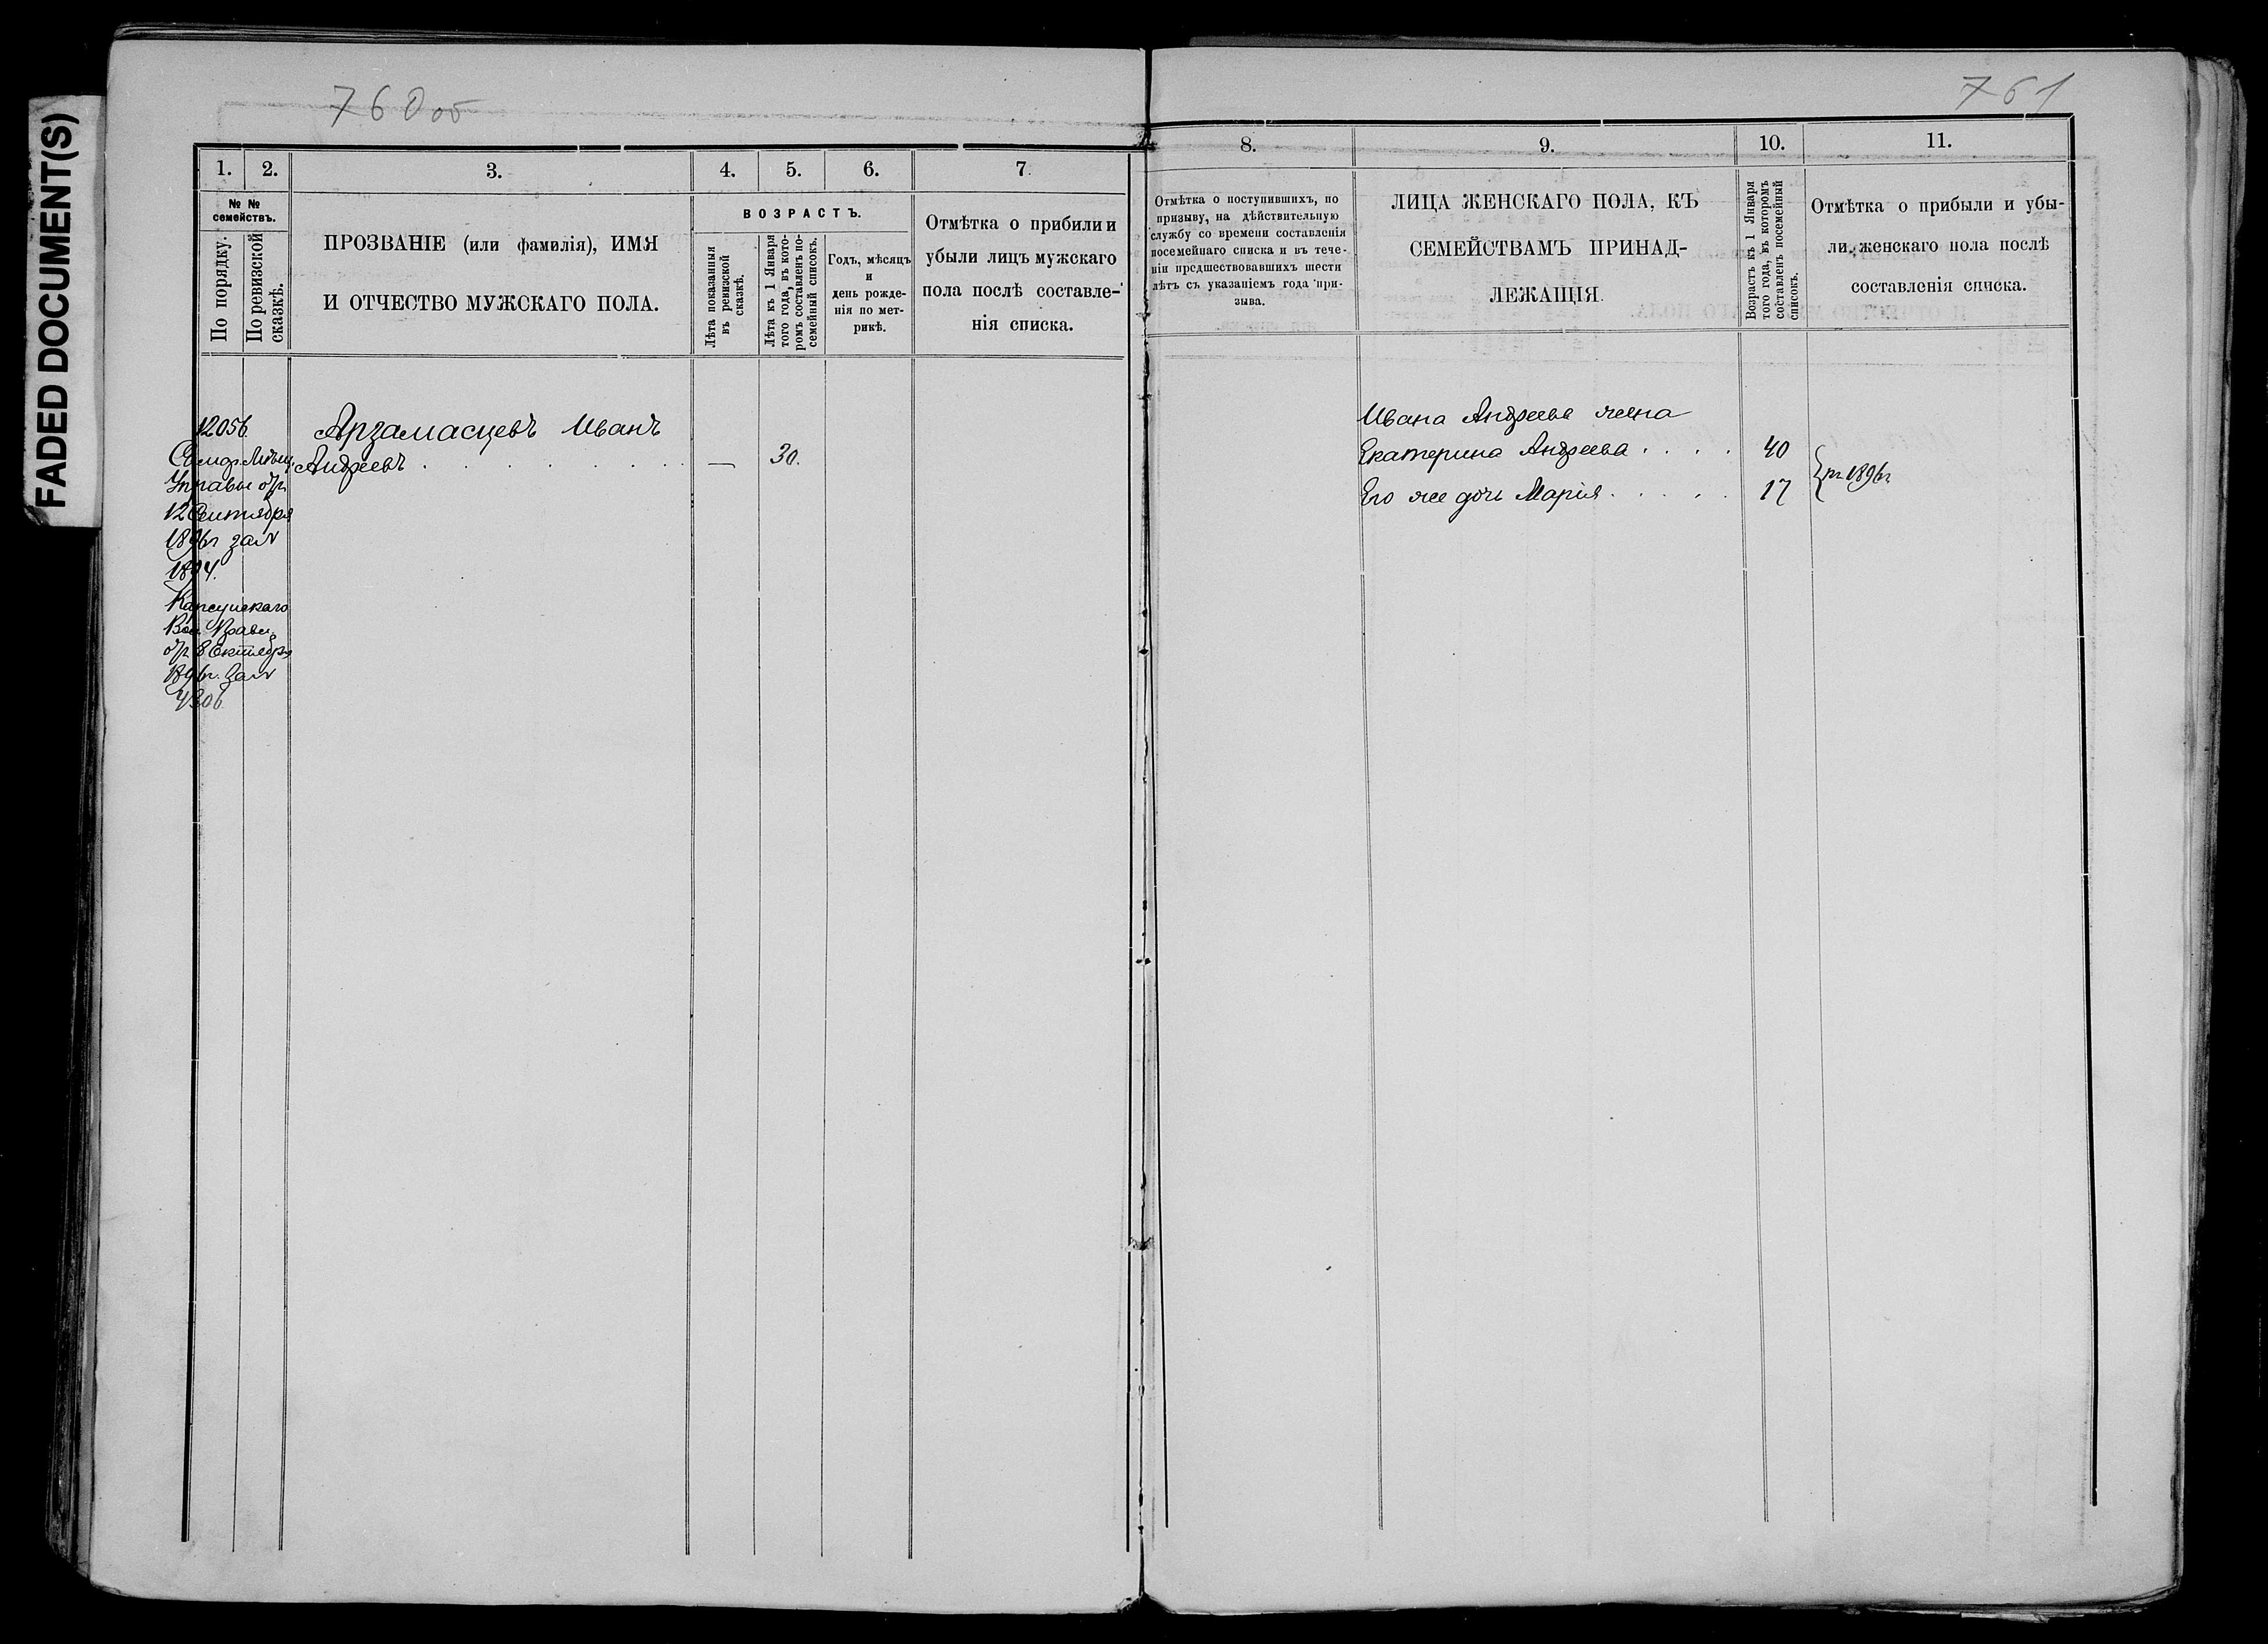 FADED DOCUMENT(S)
760 об
1. 2. 3. 4. 5. 6. 7
№ №
семействъ.
По порядку.
По ревизской
сказкѣ.
ПРОЗВАНІЕ (или фамилія), ИМЯ
И ОТЧЕСТВО МУЖСКАГО ПОЛА.
ВОЗРАСТЪ.
Лѣта показанныя
въ ревизской
сказкѣ.
Лѣта къ 1 Января
того года, въ кото-
ромъ составленъ по-
семейный списокъ.
Годъ, мѣсяцъ
и
день рожде-
нія по мет-
рикѣ.
Отмѣтка о прибыли и
убыли лицъ мужскаго
пола послѣ составле-
нія списка.
12056.
Управы отъ
12 Сентября
1896 г за №
1894.
Вол. Правл.
отъ 8 Октября
1896 г. за №
4306.
Арзамасцевъ Иванъ
Андреевъ . . . . . . . — 30.
761
8. 9. 10. 11.
Отмѣтка о поступившихъ, по
призыву, на дѣйствительную
службу со времени составленія
посемейнаго списка и въ тече-
ніи предшествовавшихъ шести
лѣтъ съ указаніемъ года при-
зыва.
ЛИЦА ЖЕНСКАГО ПОЛА, КЪ
СЕМЕЙСТВАМЪ ПРИНАД-
ЛЕЖАЩІЯ.
Возрастъ къ 1 Января
того года, въ которомъ
составленъ посемейный
списокъ.
Отмѣтка о прибыли и убы-
ли женскаго пола послѣ
составленія списка.
Ивана Андреева жена
Екатерина Андреева . . . . 40
Его же дочь Марія . . . . . 17
1896 г